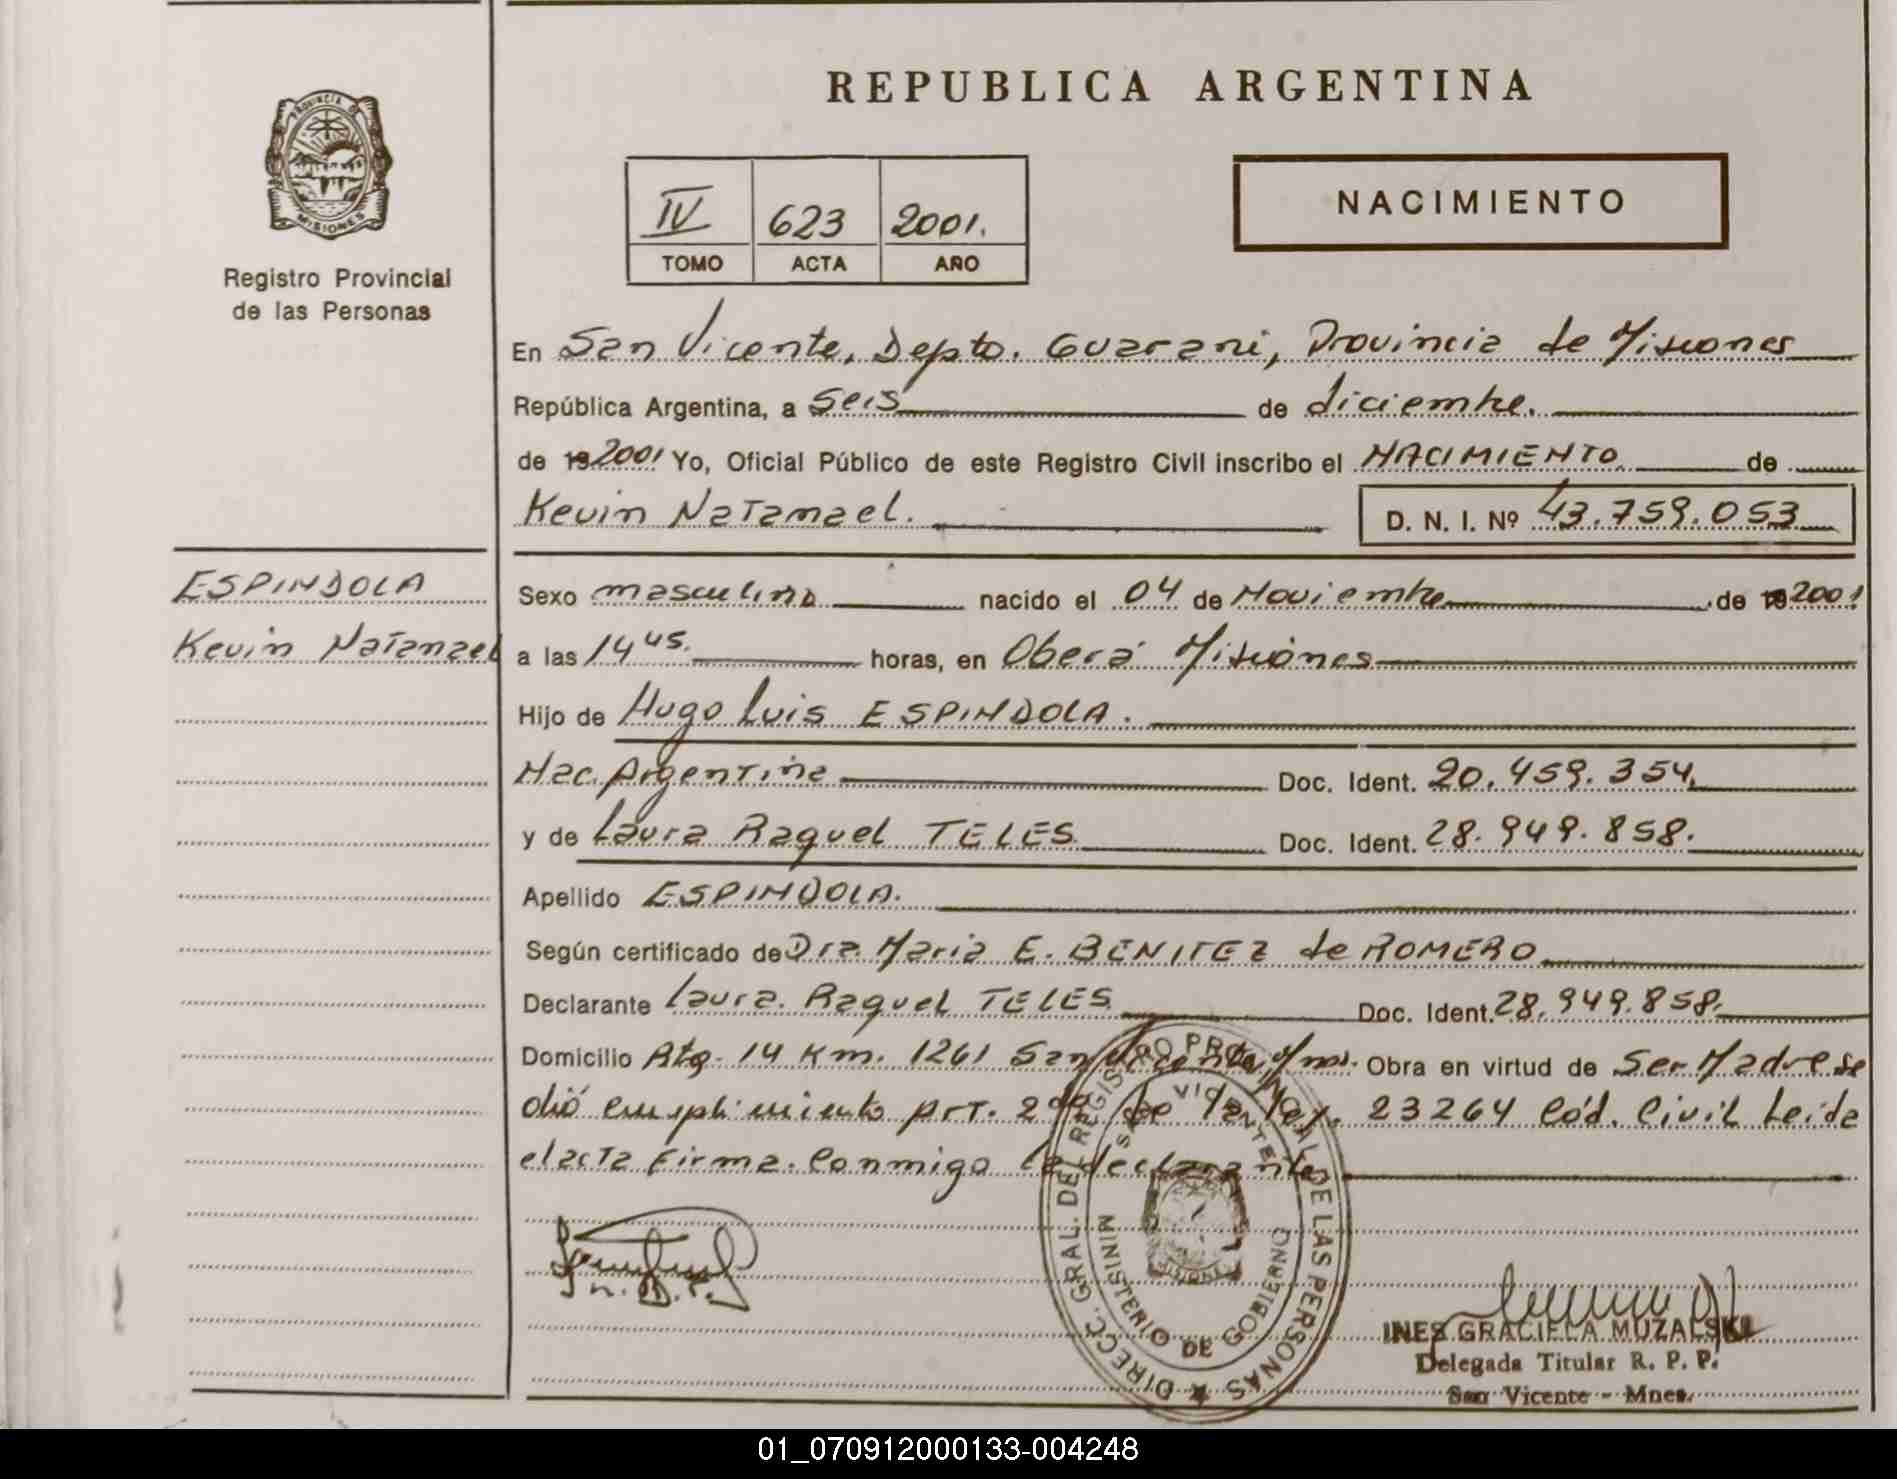 REPUBLICA ARGENTINA
PROVINCIA DE
MISIONES
Registro Provincial
de las Personas
IV 623 2001.
TOMO ACTA AÑO
NACIMIENTO
En San Vicente, Depto. Guarani, Provincia de Misiones
República Argentina, a seis de diciembre.
de 19 2001 Yo, Oficial Público de este Registro Civil inscribo el NACIMIENTO de
Kevin Natanael. D. N. I. Nº 43.759.053
ESPINDOLA
Kevin Natanael
Sexo masculino nacido el 04 de Noviembre de 19 2001
a las 14 45. horas, en Oberá Misiones
Hijo de Hugo Luis ESPINDOLA.
Nac. Argentina Doc. Ident. 20.459.354.
y de Laura Raquel TELES Doc. Ident. 28.949.858.
Apellido ESPINDOLA.
Según certificado de Dra. Maria E. BENITEZ de ROMERO
Declarante Laura. Raquel TELES Doc. Ident. 28.949.858.
Domicilio Rta. 14 Km. 1261 San Vicente Mnes. Obra en virtud de Ser Madre se
dió cumplimiento Art. de la Ley. 23264 Cód. Civil Leida
el acta Firma. Conmigo la declarante
DIRECC. GRAL. DEL REGISTRO PROVINCIAL DE LAS PERSONAS
SAN VICENTE
MINISTERIO DE GOBIERNO
MISIONES
INES GRACIELA MUZALSKI
Delegada Titular R. P. P.
San Vicente - Mnes.
01_070912000133-004248